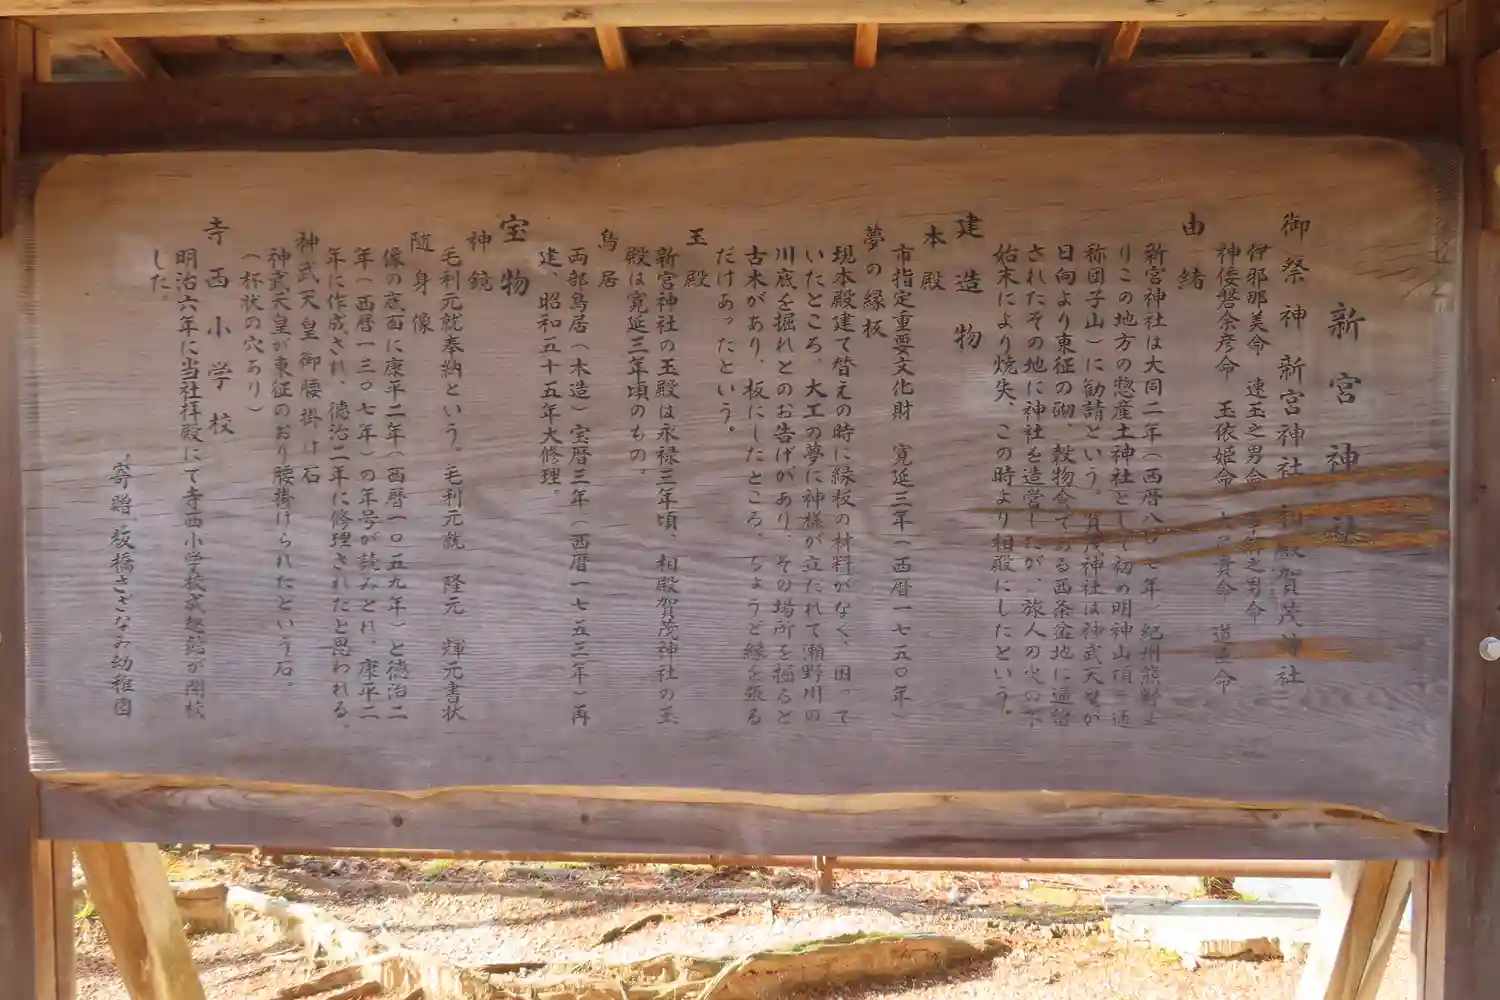 新宮神社
御祭神 新宮神社 相殿賀茂神社
伊那那美命 速玉之男命 之男命
神倭磐余彦命 玉依姫命 貴命 道主命
由緒
新宮神社は大同二年(西暦八〇七年、紀州熊野よ
りこの地方の惣産土神社として初め明神山頂(通
称団子山)に勧請という。賀茂神社は神武天皇が
日向より東征の砌、穀物倉である西条盆地に逗留
されたその地に神社を造営したが、旅人の火の不
始末により焼失、この時より相殿にしたという。
建造物
本殿
市指定重要文化財 寛延三年(西暦一七五〇年)
夢の縁板
現本殿建て替えの時に縁板の材料がなく、困って
いたところ、大工の夢に神様が立たれて瀬野川の
川底を掘れとのお告げがあり、その場所を掘ると
古木があり、板にしたところ、ちょうど縁を張る
だけあったという。
玉殿
新宮神社の玉殿は永禄三年頃、相殿賀茂神社の玉
殿は寛延三年頃のもの。
鳥居
両部鳥居(木造)宝暦三年(西暦一七五三年)再
建、昭和五十五年大修理。
宝物
神鏡
毛利元就奉納という。毛利元就 隆元 輝元書状
随身像
像の底面に康平二年(西暦一〇五九年)と徳治二
年(西暦一三〇七年)の年号が読みとれ、康平二
年に作成され、徳治二年に修理されたと思われる。
神武天皇御腰掛け石
神武天皇が東征のおり腰掛けられたという石。
(杯状の穴あり)
寺西小学校
明治六年に当社拝殿にて寺西小学校成趣館が開校
した。
寄贈 板橋さざなみ幼稚園